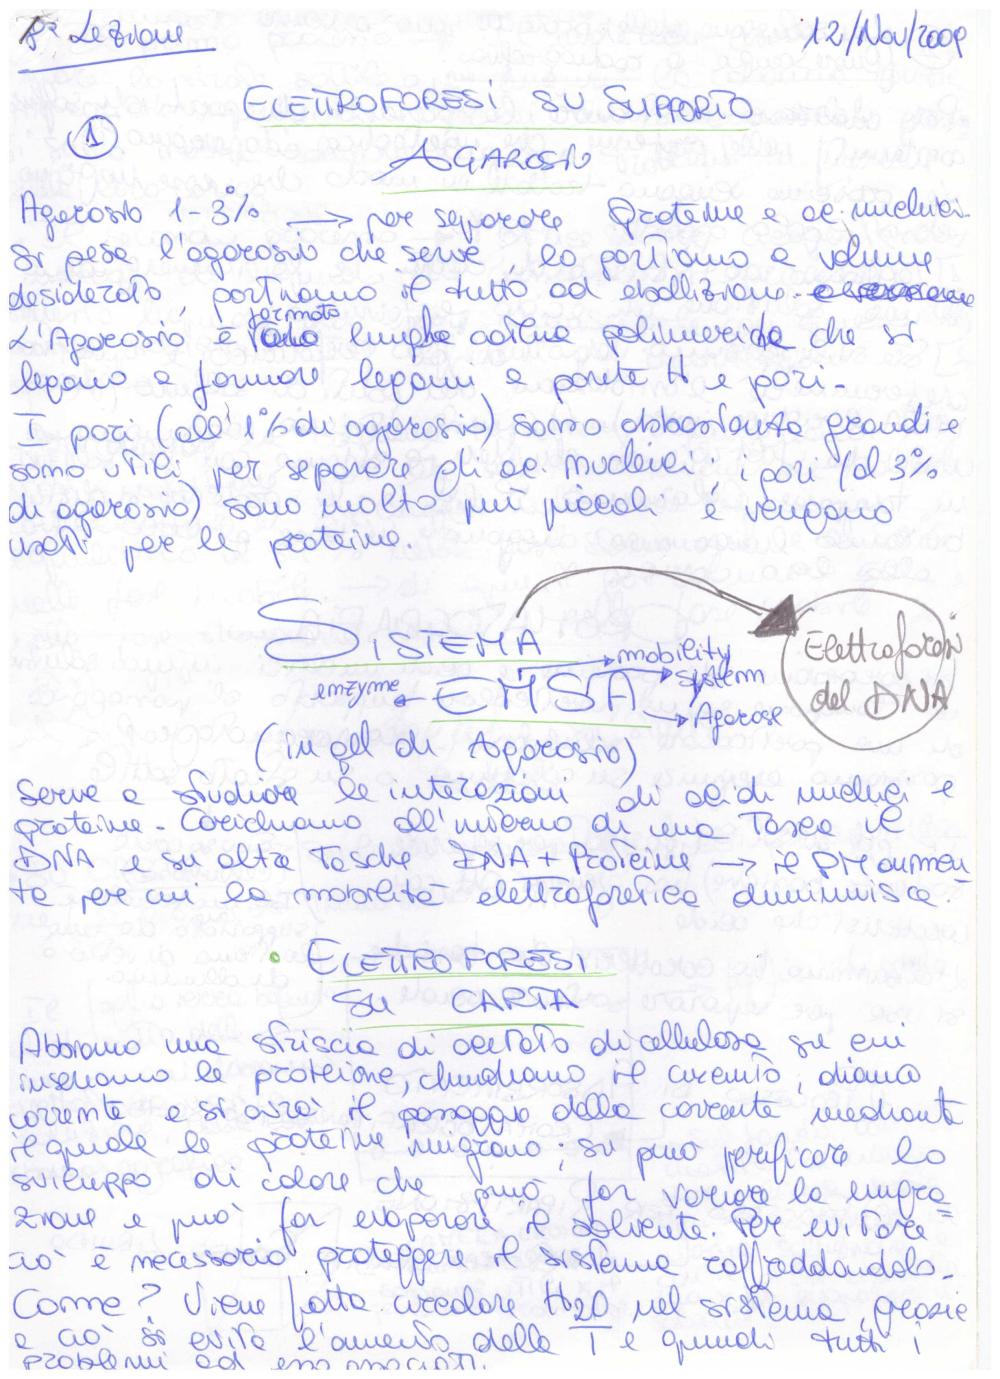 8ª Lezione
12/Nov/2009
ELETTROFORESI SU SUPPORTO
1
AGAROSIO
Agarosio 1-3% → per separare Proteine e ac. nucleici.
Si pesa l'agarosio che serve, lo portiamo a volume
desiderato, portiamo il tutto ad ebollizione.
L'Agarosio è formato lunghe catene polimeriche che si
legano a formare legami a ponte H e pori.
I pori (all'1% di agarosio) sono abbastanza grandi e
sono utili per separare gli ac. nucleici, i pori (al 3%
di agarosio) sono molto più piccoli e vengono
usati per le proteine.
SISTEMA
Elettroforesi
del DNA
mobility
system
enzyme
EMSA
Agarose
(in gel di Agarosio)
Serve a studiare le interazioni di acidi nucleici e
proteine. Carichiamo all'interno di una Tasca il
DNA e su altre Tasche DNA + Proteine → il PM aumen
ta per cui la mobilità elettroforetica diminuisce.
ELETTROFORESI
SU CARTA
Abbiamo una striscia di acetato di cellulosa su cui
inseriamo le proteine chiudiamo il circuito, diamo
corrente e si avrà il passaggio della corrente mediante
il quale le proteine migrano, si può verificare lo
sviluppo di calore che può far variare la migra
zione e può far evaporare il solvente. Per evitare
ciò è necessario proteggere il sistema raffreddandolo.
Come? Viene fatta circolare H2O nel sistema, grazie
a ciò si evita l'aumento della T e quindi tutti i
problemi ad essa